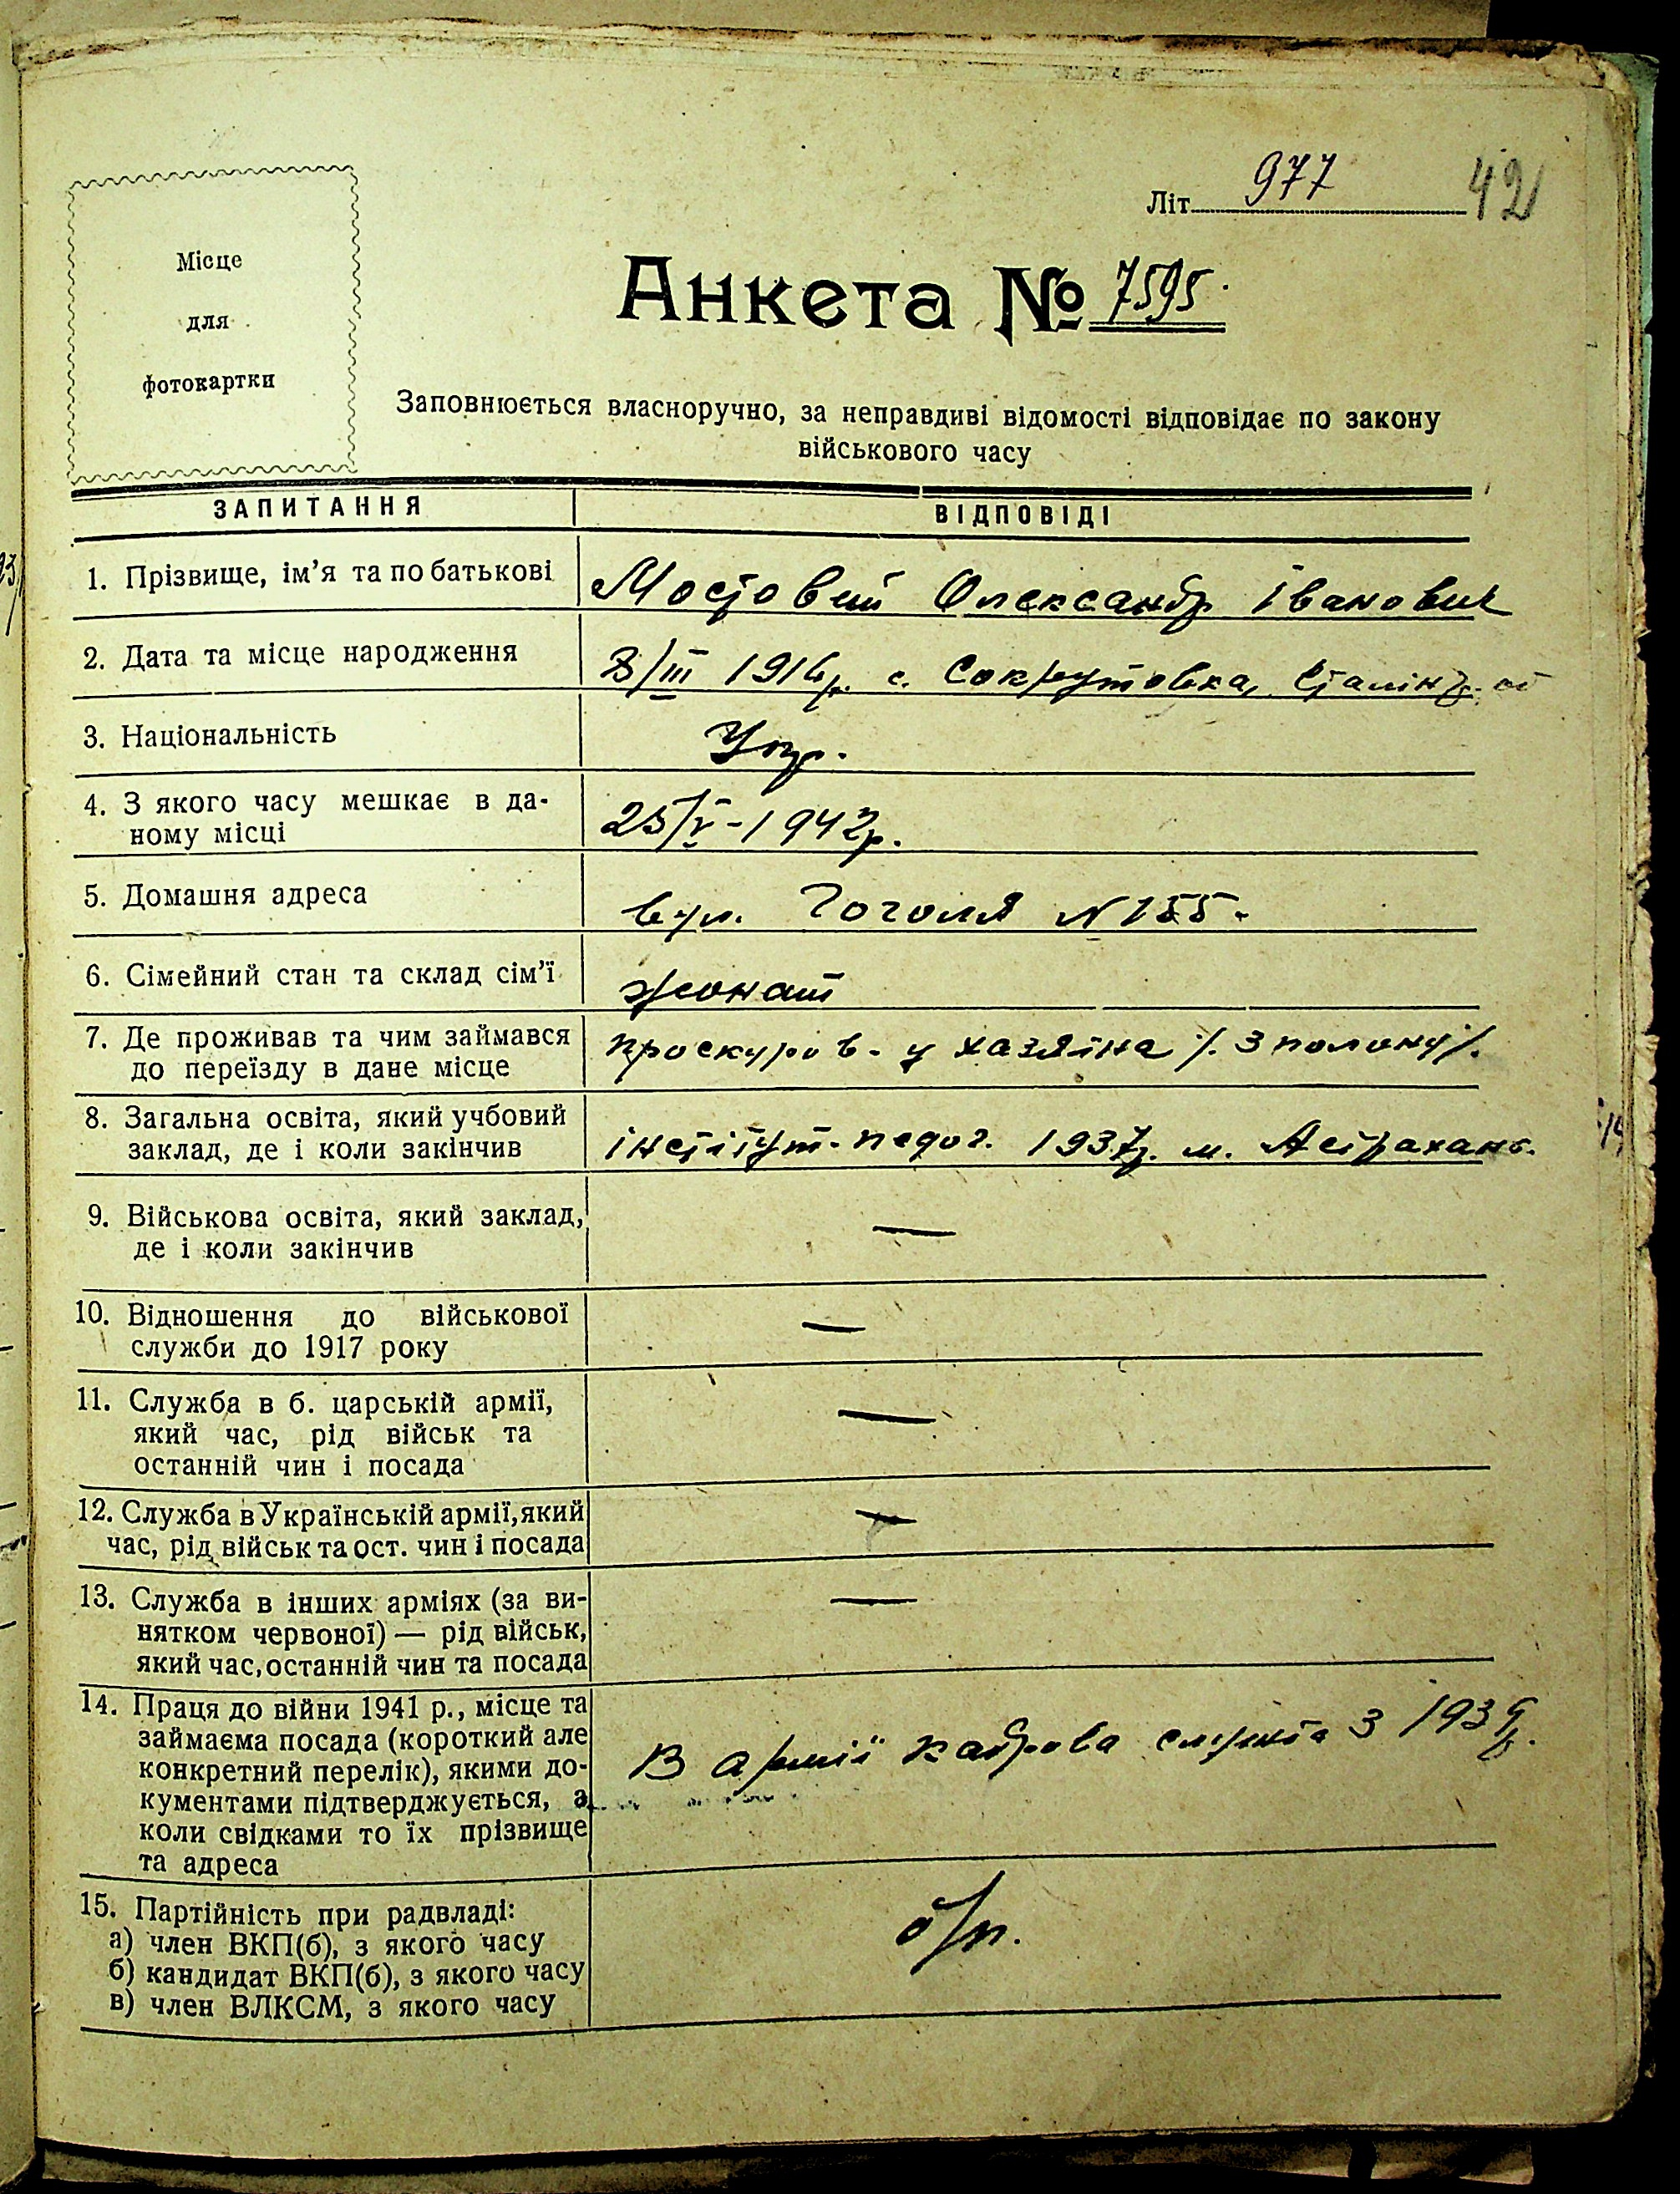 Літ. 977 42
Місце
для
фотокартки
Анкета № 7595.
Заповнюється власноручно, за неправдиві відомості відповідає по закону
військового часу
ЗАПИТАННЯ ВІДПОВІДІ
1. Прізвище, ім’я та по батькові Мостовий Олександр Іванович
2. Дата та місце народження 8/III 1916р. с. Сокрутовка, Сталінгр. об
3. Національність Укр.
4. З якого часу мешкає в да-
ному місці 25/V-1942р.
5. Домашня адреса вул. Гоголя №155.
6. Сімейний стан та склад сім’ї жонат
7. Де проживав та чим займався
до переїзду в дане місце Проскуров - у хазяіна /. З полону/.
8. Загальна освіта, який учбовий
заклад, де і коли закінчив інстітут. педог. 1937р. м. Астрахань.
9. Військова освіта, який заклад, —
де і коли закінчив
10. Відношення до військової —
служби до 1917 року
11. Служба в б. царській армії, —
який час, рід військ та
останній чин і посада
12. Служба в Українській армії, який —
час, рід військ та ост. чин і посада
13. Служба в інших арміях (за ви- —
нятком червоної) — рід військ,
який час, останній чин та посада
14. Праця до війни 1941 р., місце та
займаєма посада (короткий але
конкретний перелік), якими до- В армії кадрова служба з 1939р.
кументами підтверджується, а
коли свідками то їх прізвище
та адреса
15. Партійність при радвладі: б/п.
а) член ВКП(б), з якого часу
б) кандидат ВКП(б), з якого часу
в) член ВЛКСМ, з якого часу